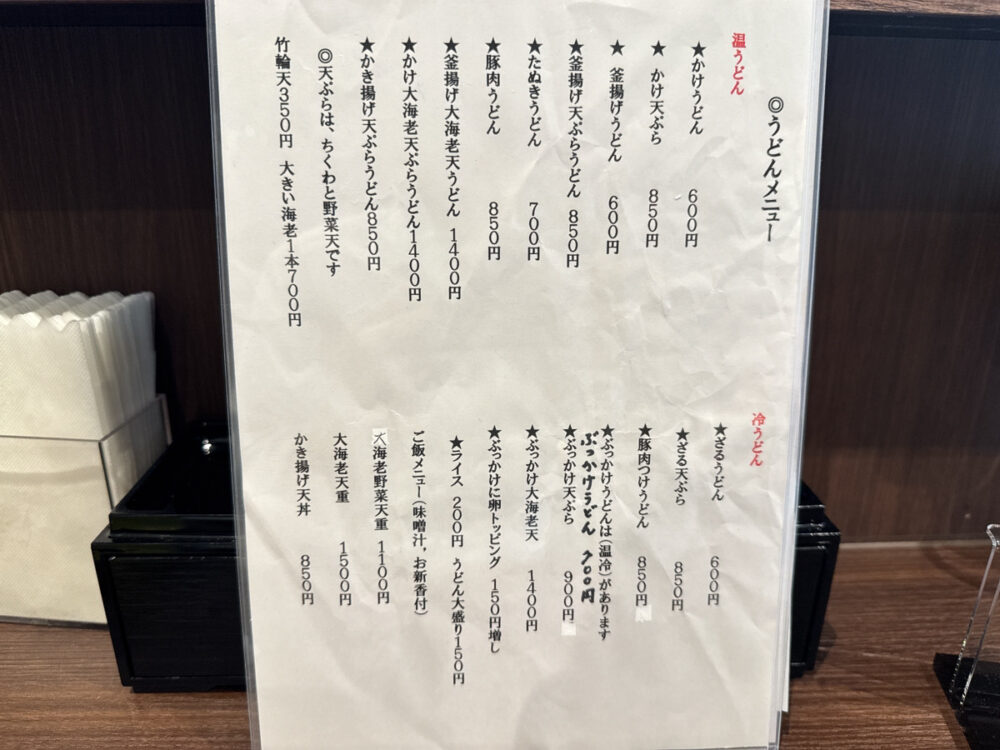 ◎うどんメニュー
温うどん
★かけうどん　600円
★かけ天ぷら　850円
★釜揚げうどん　600円
★釜揚げ天ぷらうどん　850円
★たぬきうどん　700円
★豚肉うどん　850円
★釜揚げ大海老天うどん　1400円
★かけ大海老天ぷらうどん1400円
★かき揚げ天ぷらうどん850円
◎天ぷらは、ちくわと野菜天です
竹輪天350円　大きい海老1本700円
冷うどん
★ざるうどん　600円
★ざる天ぷら　850円
★豚肉つけうどん　850円
★ぶっかけうどんは(温冷)があります
ぶっかけうどん　700円
★ぶっかけ天ぷら　900円
★ぶっかけ大海老天　1400円
★ぶっかけに卵トッピング　150円増し
★ライス　200円　うどん大盛り150円
ご飯メニュー(味噌汁，お新香付)
大海老野菜天重　1100円
大海老天重　1500円
かき揚げ天丼　850円